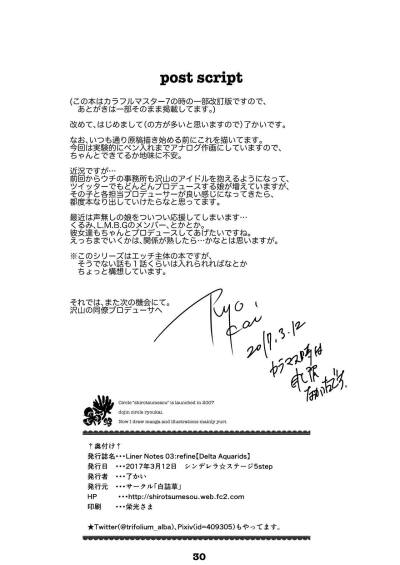 post script
(この本はカラフルマスター7の時の一部改訂版ですので、
あとがきは一部そのまま掲載してます。)
改めて、はじめまして(の方が多いと思いますので)了かいです。
なお、いつも通り原稿描き始める前にこれを描いてます。
今回は実験的にペン入れまでアナログ作画にしていますので、
ちゃんとできてるか地味に不安。
近況ですが…
前回からウチの事務所も沢山のアイドルを抱えるようになって、
ツイッターでもどんどんプロデュースする娘が増えていますが、
その子と各担当プロデューサーが良い感じになってきたら、
都度本なり出していけたらなと思ってます。
最近は声無しの娘をついつい応援してしまいます…
くるみ、L.M.B.Gのメンバー、とかとか。
彼女達もちゃんとプロデュースしてあげたいですね。
えっちまでいくかは、関係が熟したら…かなとは思いますが。
※このシリーズはエッチ主体の本ですが、
そうでない話も1話くらいは入れられればなとか
ちょっと構想しています。
それでは、また次の機会にて。
沢山の同僚プロデューサへ
Ryo
Kai
2017.3.12
Circle "shirotsumesou" is launched in 2007
dojin circle ryoukai.
Now I draw manga and illustrations mainly yuri.
↑奥付け↑
発行誌名・・・Liner Notes 03:refine【Delta Aquarids】
発行日 ・・・2017年3月12日 シンデレラ☆ステージ5step
発行者 ・・・了かい
発行元 ・・・サークル「白詰草」
HP ・・・http://shirotsumesou.web.fc2.com
印刷 ・・・栄光さま
★Twitter(@trifolium_alba)、Pixiv(id=409305)もやってます。
30